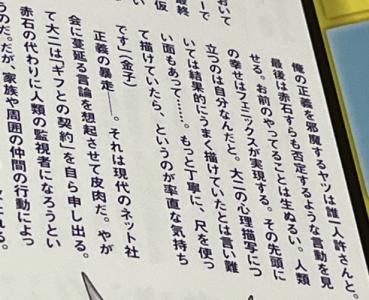 おいて
ーで
最終
仮
俺の正義を邪魔するヤツは誰一人許さんと。
最後は赤石すらも否定するような言動を見
せる。お前のやってることは生ぬるい。人類
の幸せはフェニックスが実現する。その先頭に
立つのは自分なんだと。大二の心理描写につ
いては結果的にうまく描けていたとは言い難
い面もあって……。もっと丁寧に、尺を使っ
て描けていたら、というのが率直な気持ち
です」(金子)
正義の暴走――。それは現代のネット社
会に蔓延る言論を想起させて皮肉だ。やが
て大二は「ギフとの契約」を自ら申し出る。
赤石の代わりに人類の監視者になろうとい
うのだ。だが、家族や周囲の仲間の行動によっ